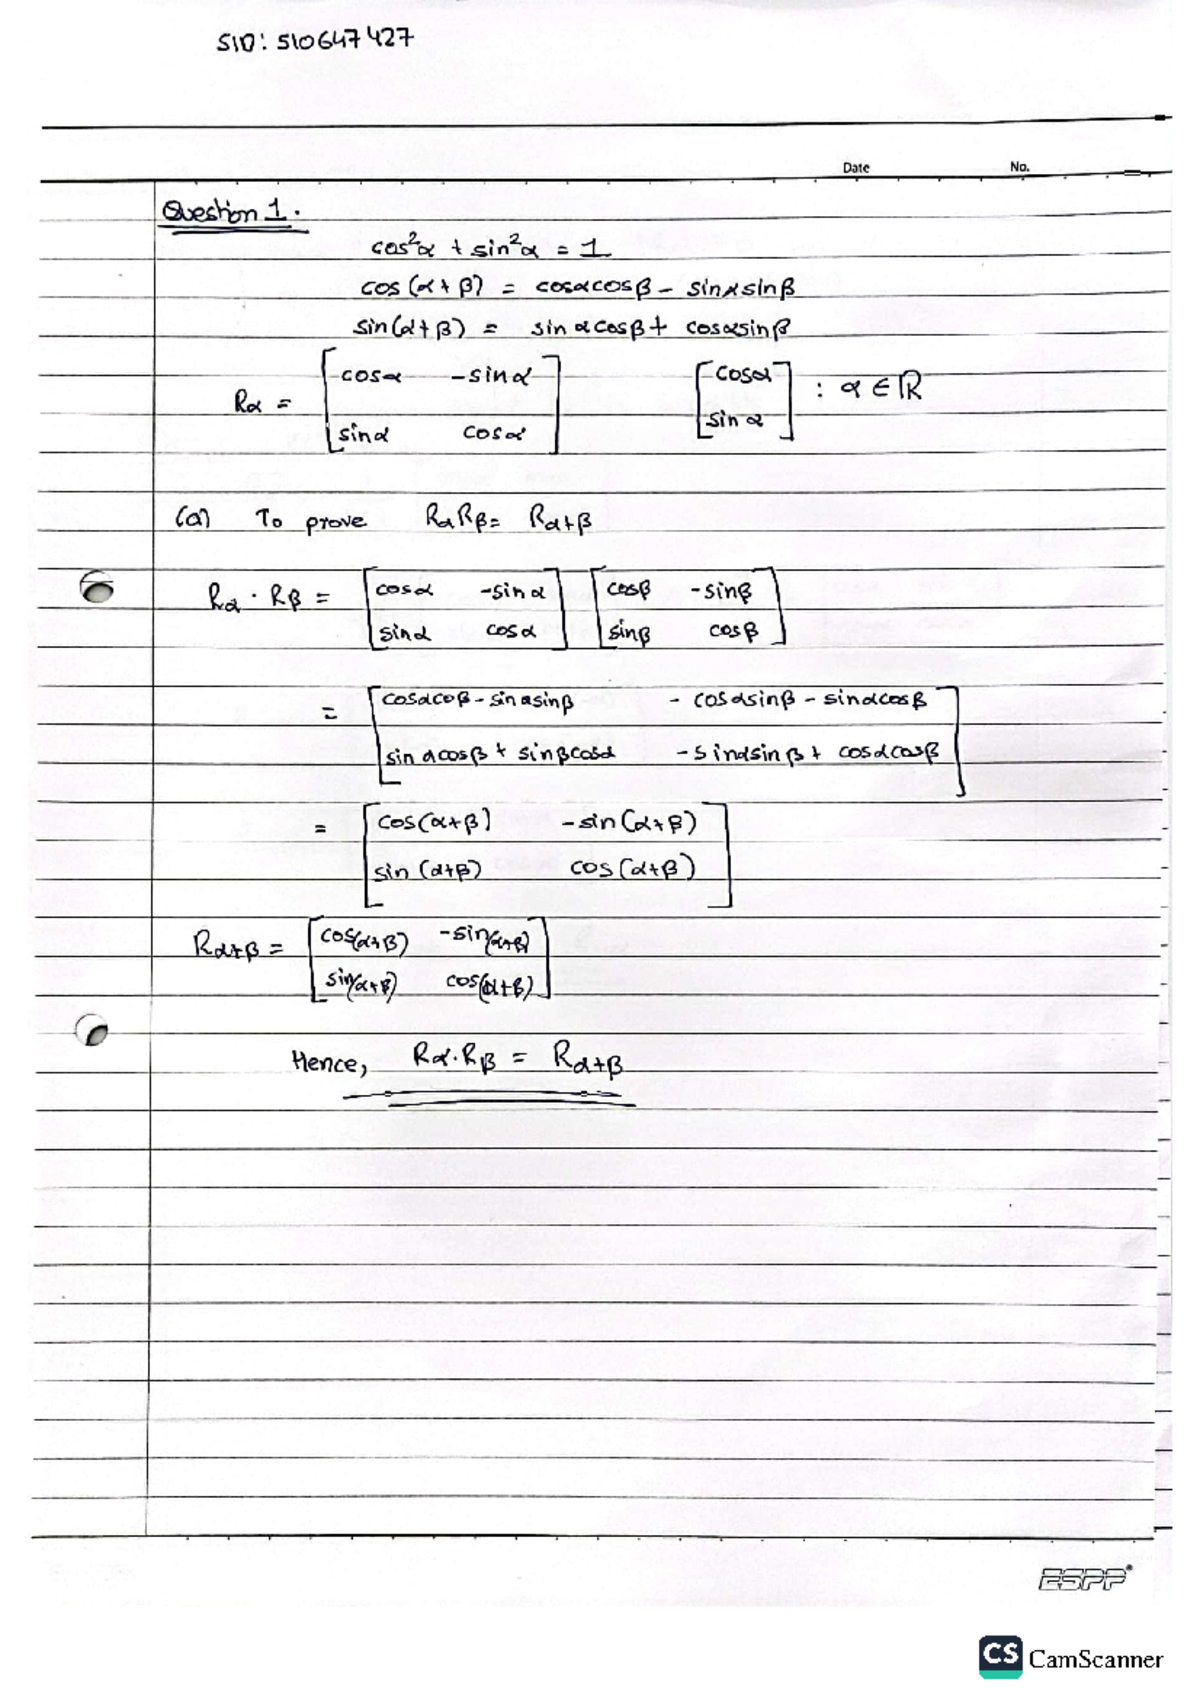 SID: 510647427
Date No.
Question 1.
cos²α + sin²α = 1
cos(α+β) = cosαcosβ - sinαsinβ
sin(α+β) = sinαcosβ + cosαsinβ
Rα = [cosα -sinα [cosα] : α ∈ ℝ
sinα cosα] sinα]
(a) To prove RαRβ = Rα+β
Rα · Rβ = [cosα -sinα] [cosβ -sinβ]
[sinα cosα] [sinβ cosβ]
= [cosαcoβ - sinαsinβ - cosαsinβ - sinαcosβ]
[sinαcosβ + sinβcosα -sinαsinβ + cosαcosβ]
= [cos(α+β) -sin(α+β)]
[sin(α+β) cos(α+β)]
Rα+β = [cos(α+β) -sin(α+β)]
[sin(α+β) cos(α+β)]
Hence, Rα·Rβ = Rα+β
ESPP
CS CamScanner